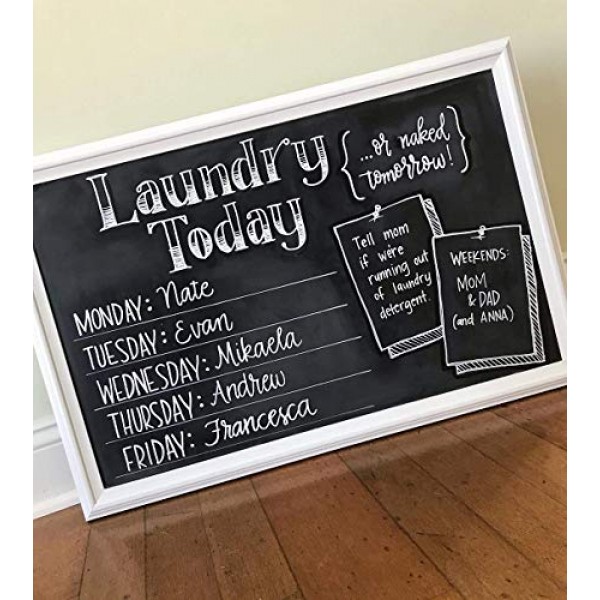 Laundry
Today
{...or naked
tomorrow!}
MONDAY: Nate
TUESDAY: Evan
WEDNESDAY: Mikaela
THURSDAY: Andrew
FRIDAY: Francesca
Tell mom
if we're
running out
of laundry
detergent.
WEEKENDS:
MOM
& DAD
(and ANNA)